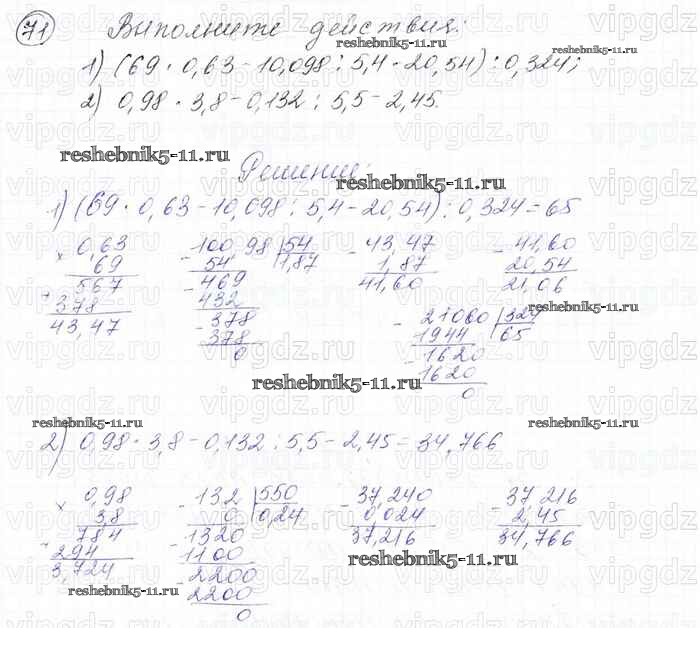 71 Выполните действия:
1) (69 · 0,63 - 10,098 : 5,4 - 20,54) : 0,324;
2) 0,98 · 3,8 - 0,132 : 5,5 - 2,45.
Решение:
1) (69 · 0,63 - 10,098 : 5,4 - 20,54) : 0,324 = 65
× 0,63
69
567
+ 378
43,47
- 100,98 | 54
54 | 1,87
- 469
432
- 378
378
0
- 43,47
1,87
41,60
- 41,60
20,54
21,06
- 21060 | 324
1944 | 65
- 1620
1620
0
2) 0,98 · 3,8 - 0,132 : 5,5 - 2,45 = 34,766
× 0,98
3,8
784
+ 294
3,724
- 132 | 550
0 | 0,24
- 1320
1100
- 2200
2200
0
- 37,240
0,024
37,216
- 37,216
2,45
34,766
reshebnik5-11.ru
vipgdz